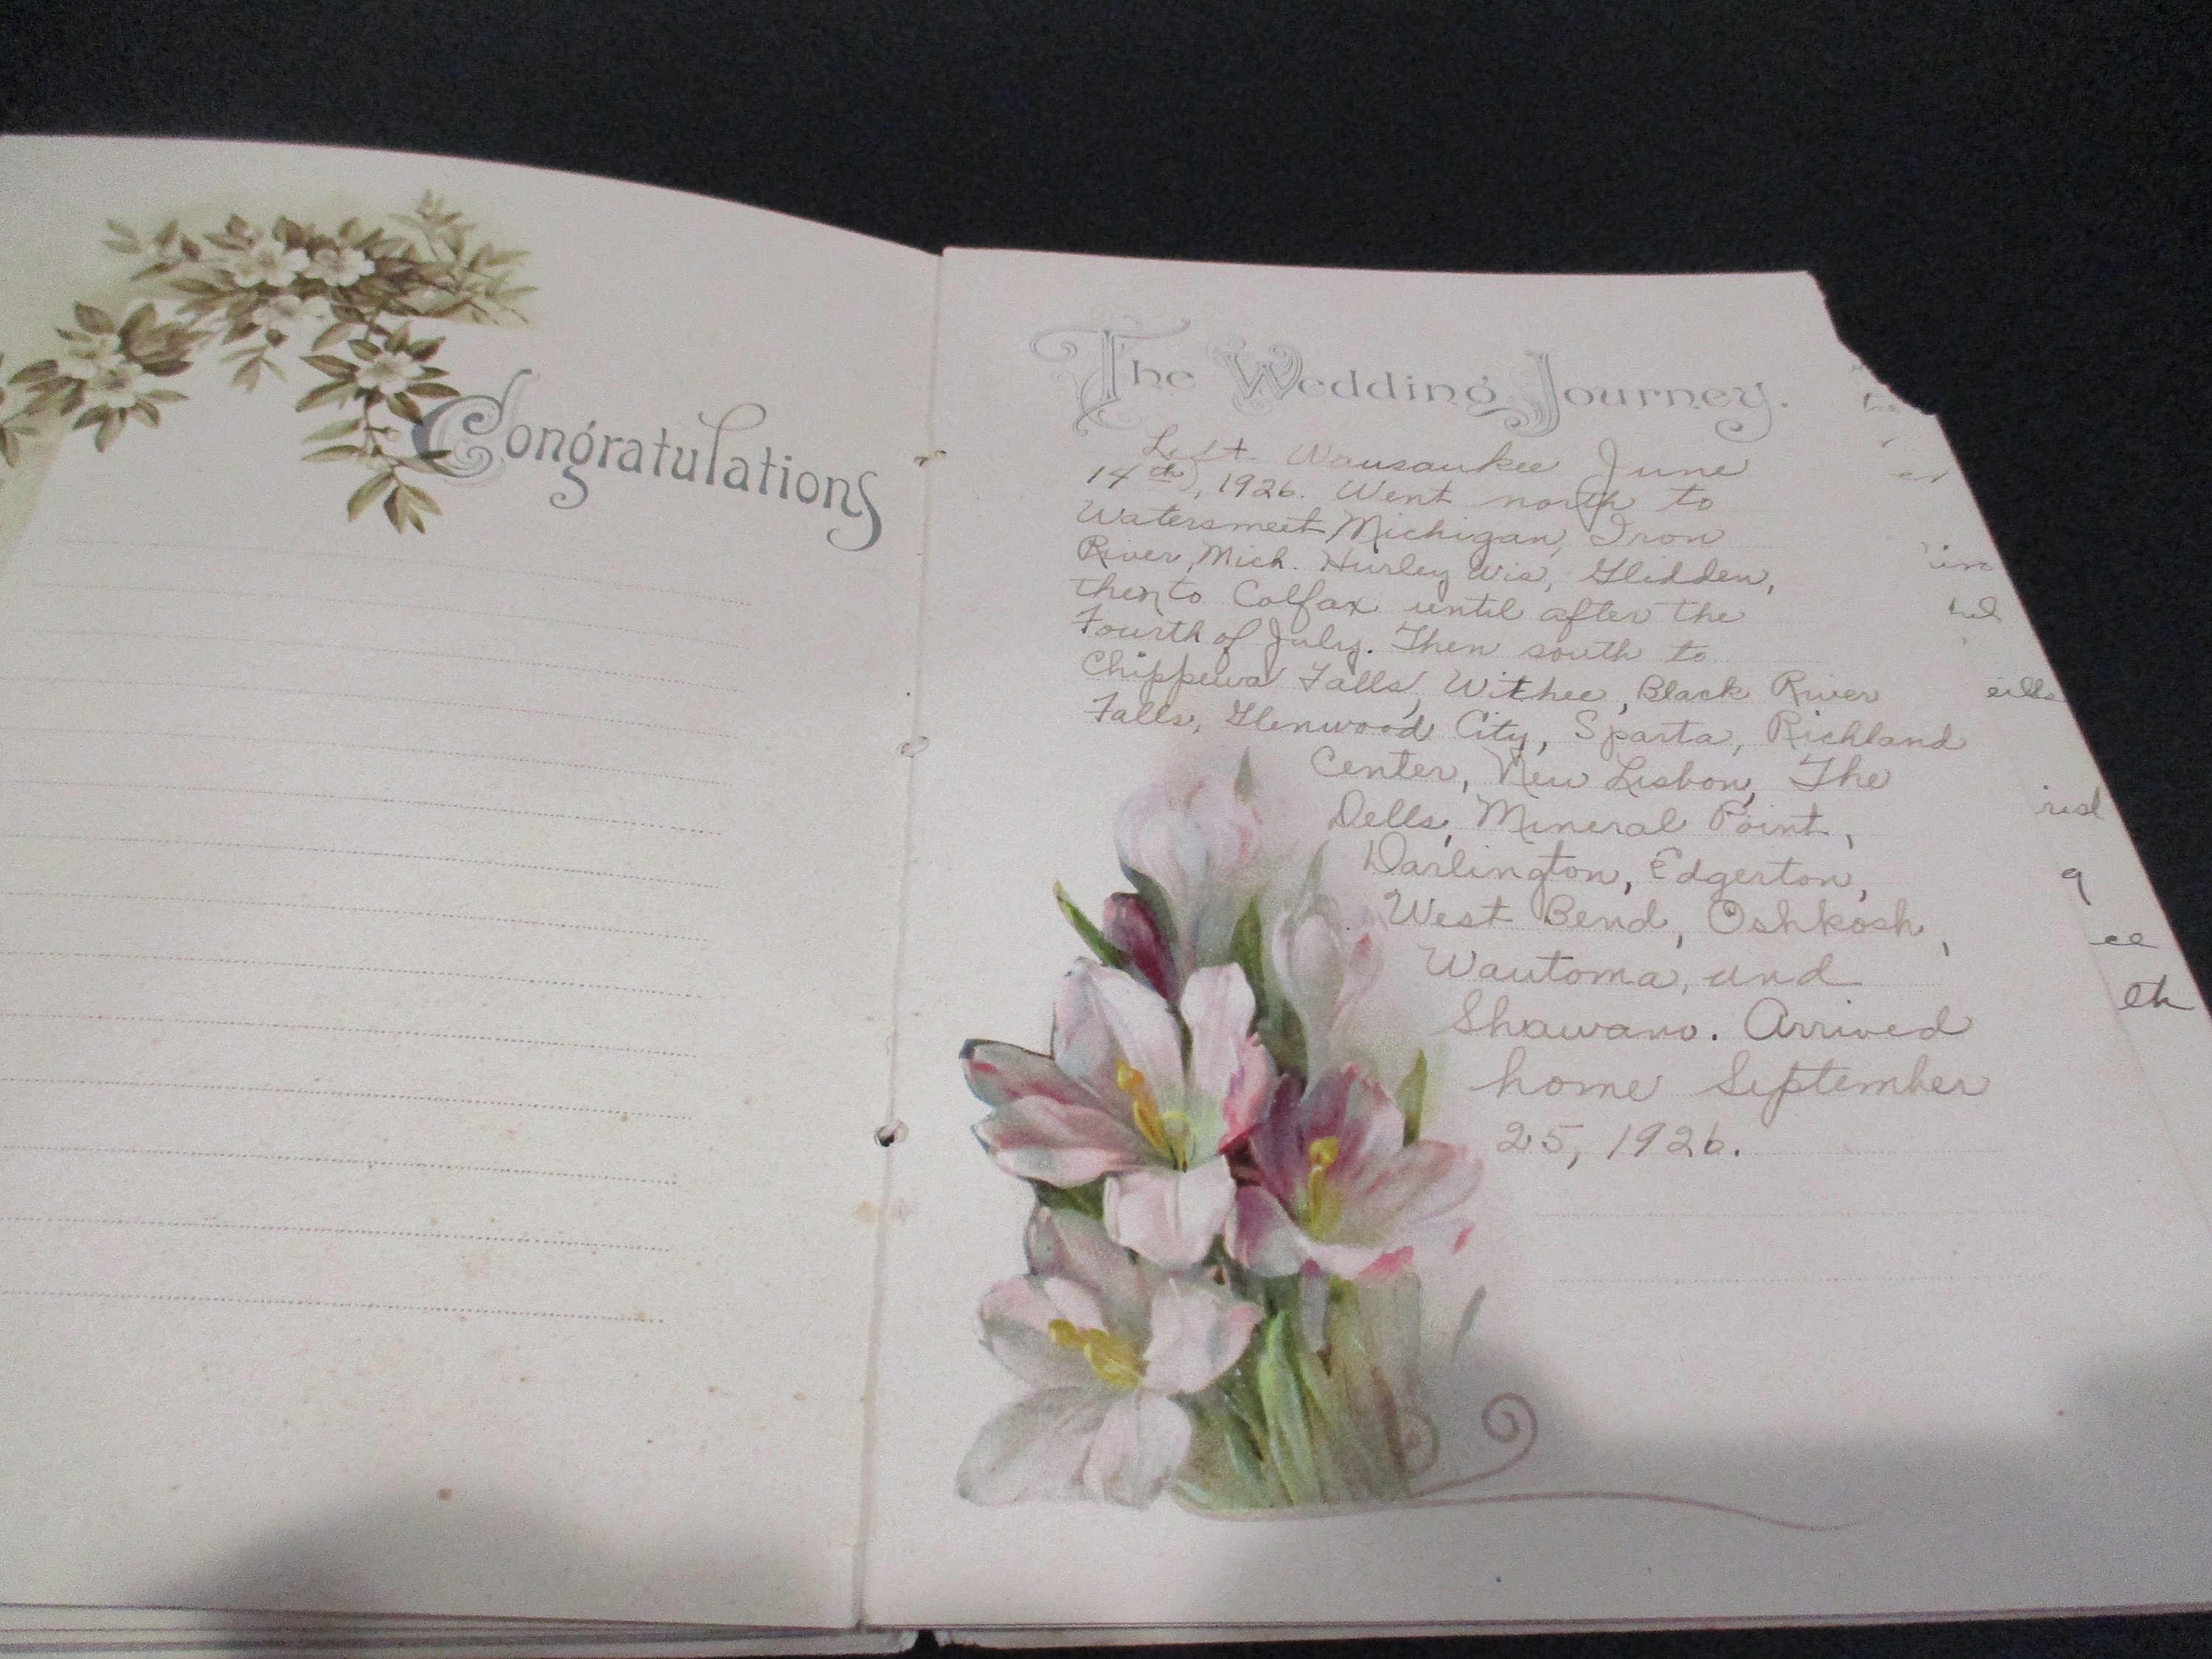 Congratulations
The Wedding Journey.
Left Wausaukee June
14th, 1926. Went north to
Watersmeet Michigan, Iron
River, Mich. Hurley Wis, Glidden,
then to Colfax until after the
Fourth of July. Then south to
Chippewa Falls, Withee, Black River
Falls, Glenwood City, Sparta, Richland
Center, New Lisbon, The
Dells, Mineral Point,
Darlington, Edgerton,
West Bend, Oshkosh,
Wautoma, and
Shawano. Arrived
home September
25, 1926.